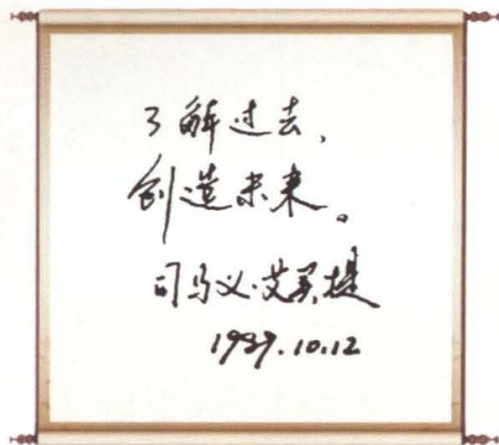 了解过去,
创造未来。
司马义·艾买提
1987.10.12